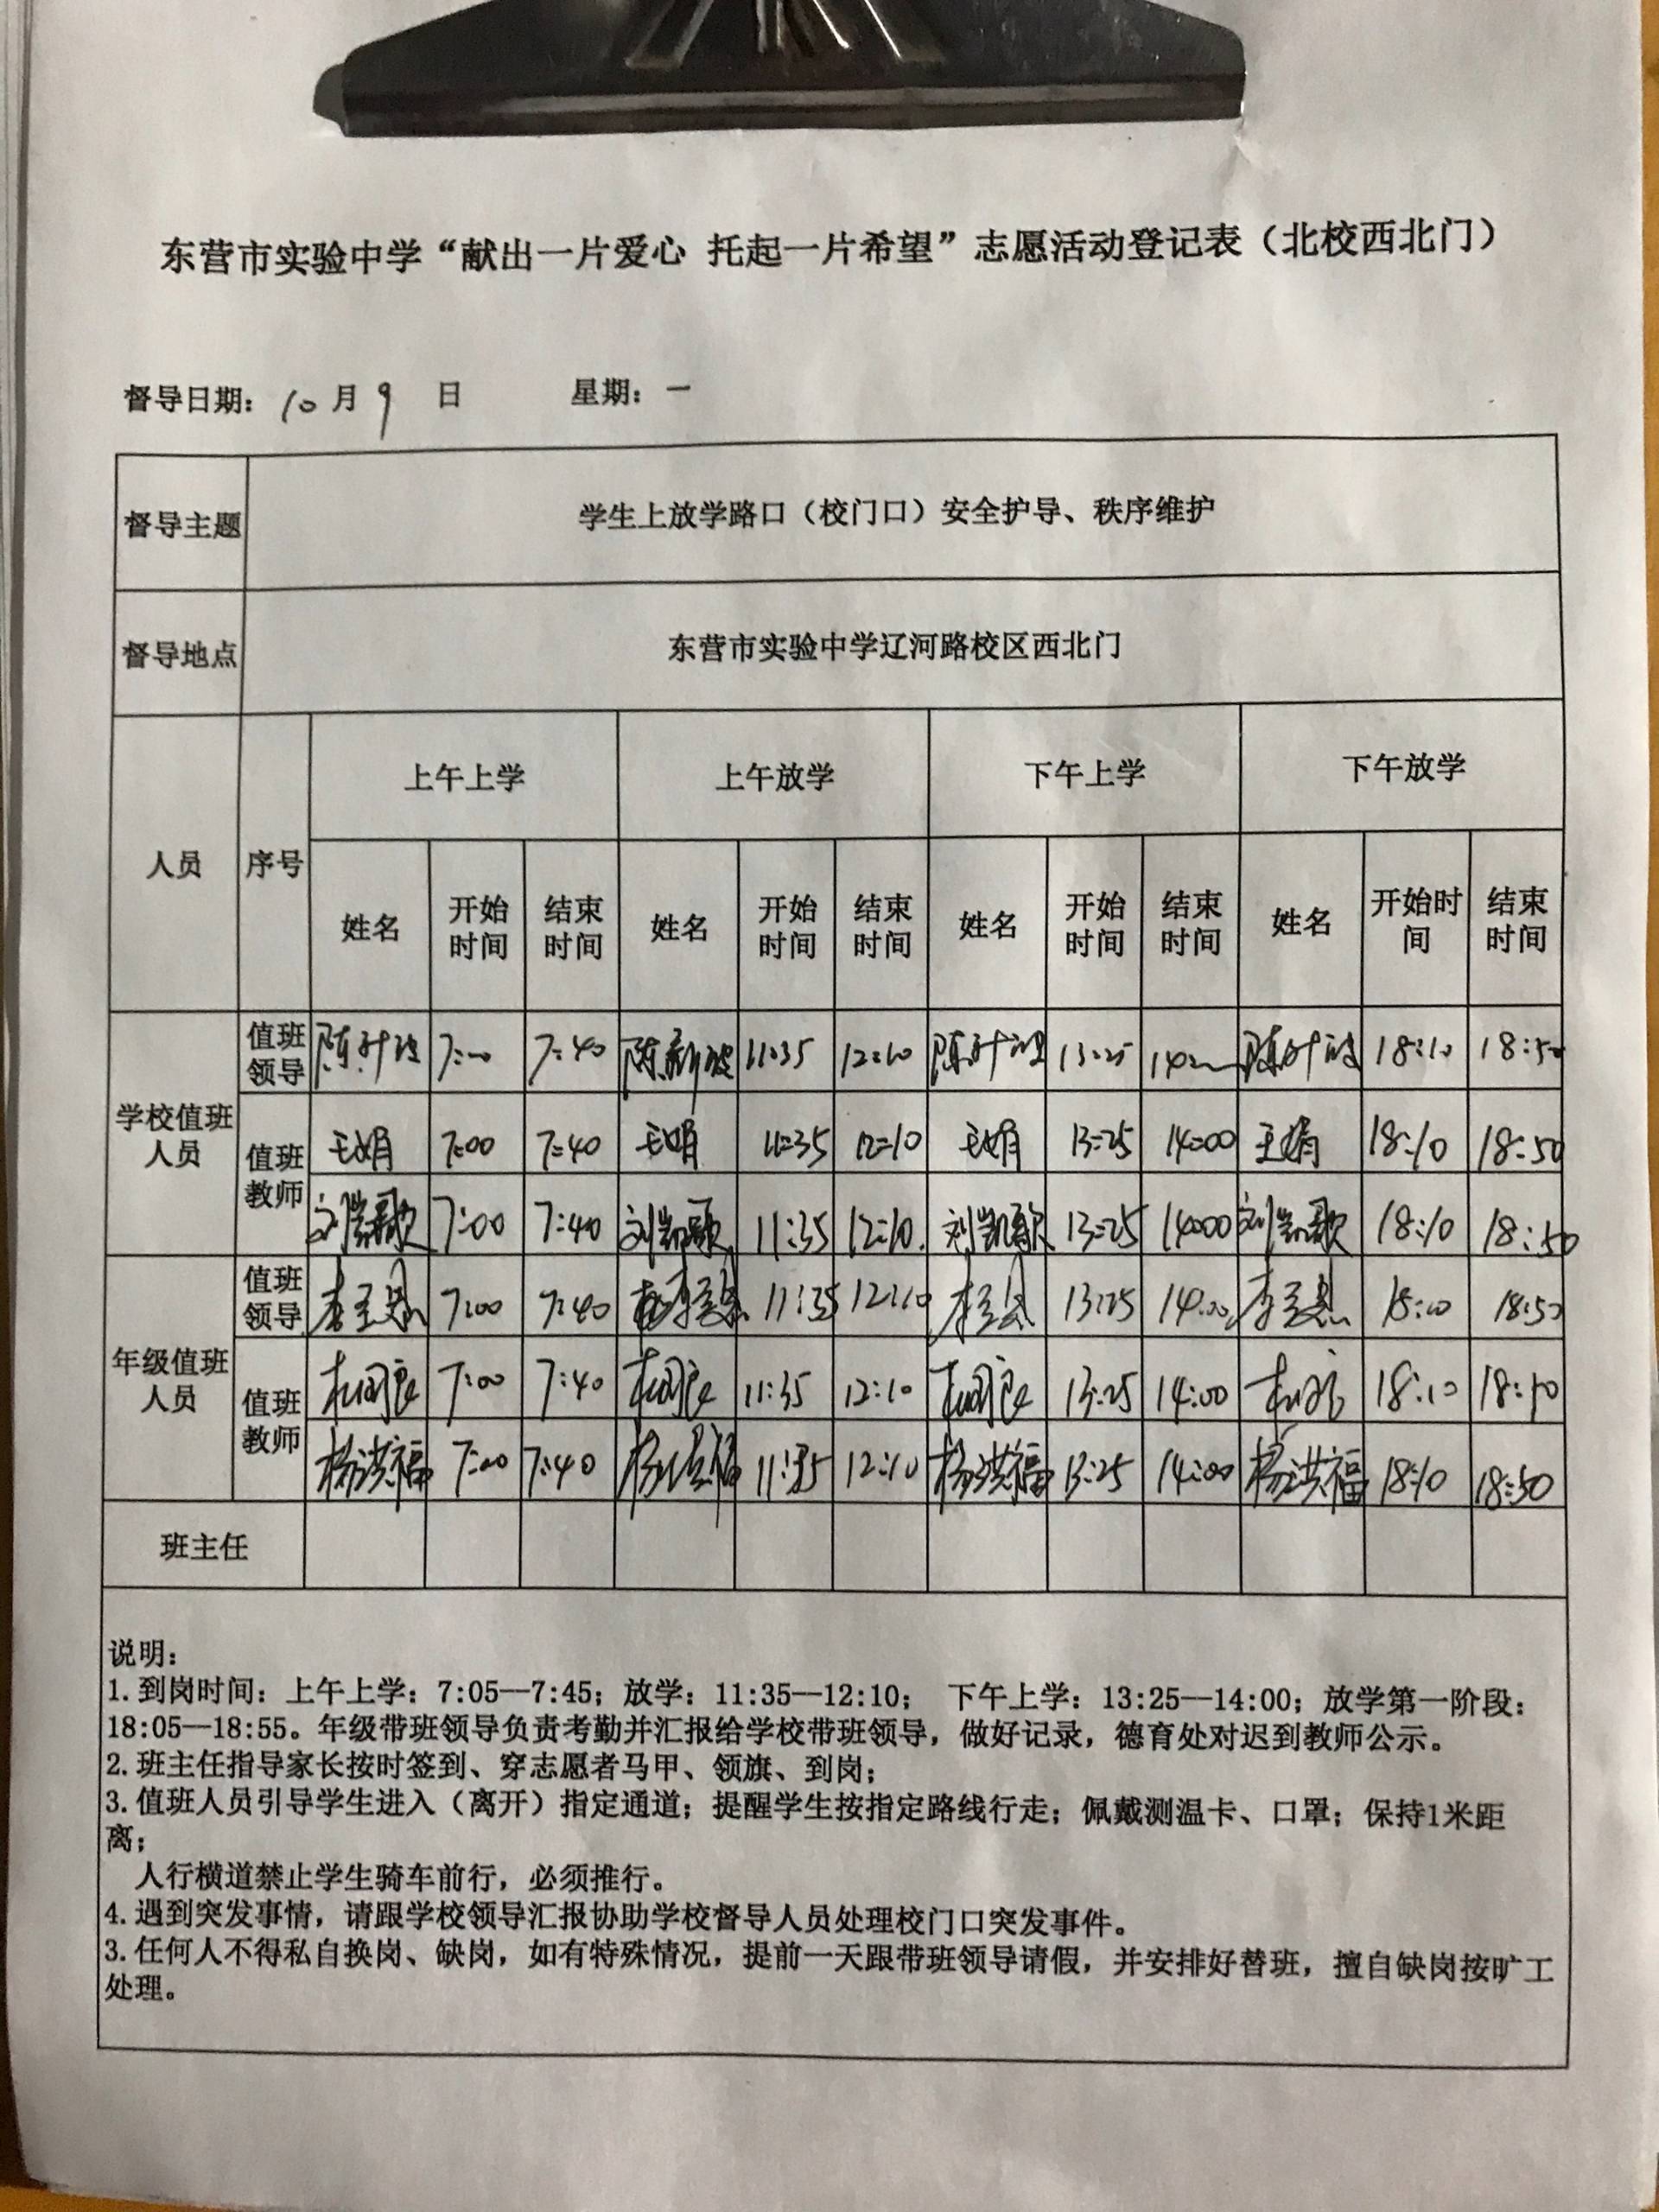 东营市实验中学“献出一片爱心 托起一片希望”志愿活动登记表（北校西北门）
督导日期： 10 月 9 日 星期： 一
督导主题 学生上放学路口（校门口）安全护导、秩序维护
督导地点 东营市实验中学辽河路校区西北门
人员 序号 上午上学 上午放学 下午上学 下午放学
姓名 开始时间 结束时间 姓名 开始时间 结束时间 姓名 开始时间 结束时间 姓名 开始时间 结束时间
学校值班人员 值班领导 7:00 7:40 11:35 12:10 13:25 14:00 18:10 18:50
值班教师 王娟 7:00 7:40 王娟 11:35 12:10 王娟 13:25 14:00 王娟 18:10 18:50
刘凯歌 7:00 7:40 刘凯歌 11:35 12:10 刘凯歌 13:25 14:00 刘凯歌 18:10 18:50
年级值班人员 值班领导 7:00 7:40 11:35 12:10 13:25 14:00 18:50
值班教师 7:00 7:40 11:35 12:10 13:25 14:00 18:10 18:50
杨洪福 7:00 7:40 杨洪福 11:35 12:10 杨洪福 13:25 14:00 杨洪福 18:10 18:50
班主任
说明：
1.到岗时间：上午上学：7:05—7:45；放学：11:35—12:10； 下午上学：13:25—14:00；放学第一阶段：
18:05—18:55。年级带班领导负责考勤并汇报给学校带班领导，做好记录，德育处对迟到教师公示。
2.班主任指导家长按时签到、穿志愿者马甲、领旗、到岗；
3.值班人员引导学生进入（离开）指定通道；提醒学生按指定路线行走；佩戴测温卡、口罩；保持1米距
离；
人行横道禁止学生骑车前行，必须推行。
4.遇到突发事情，请跟学校领导汇报协助学校督导人员处理校门口突发事件。
3.任何人不得私自换岗、缺岗，如有特殊情况，提前一天跟带班领导请假，并安排好替班，擅自缺岗按旷工
处理。